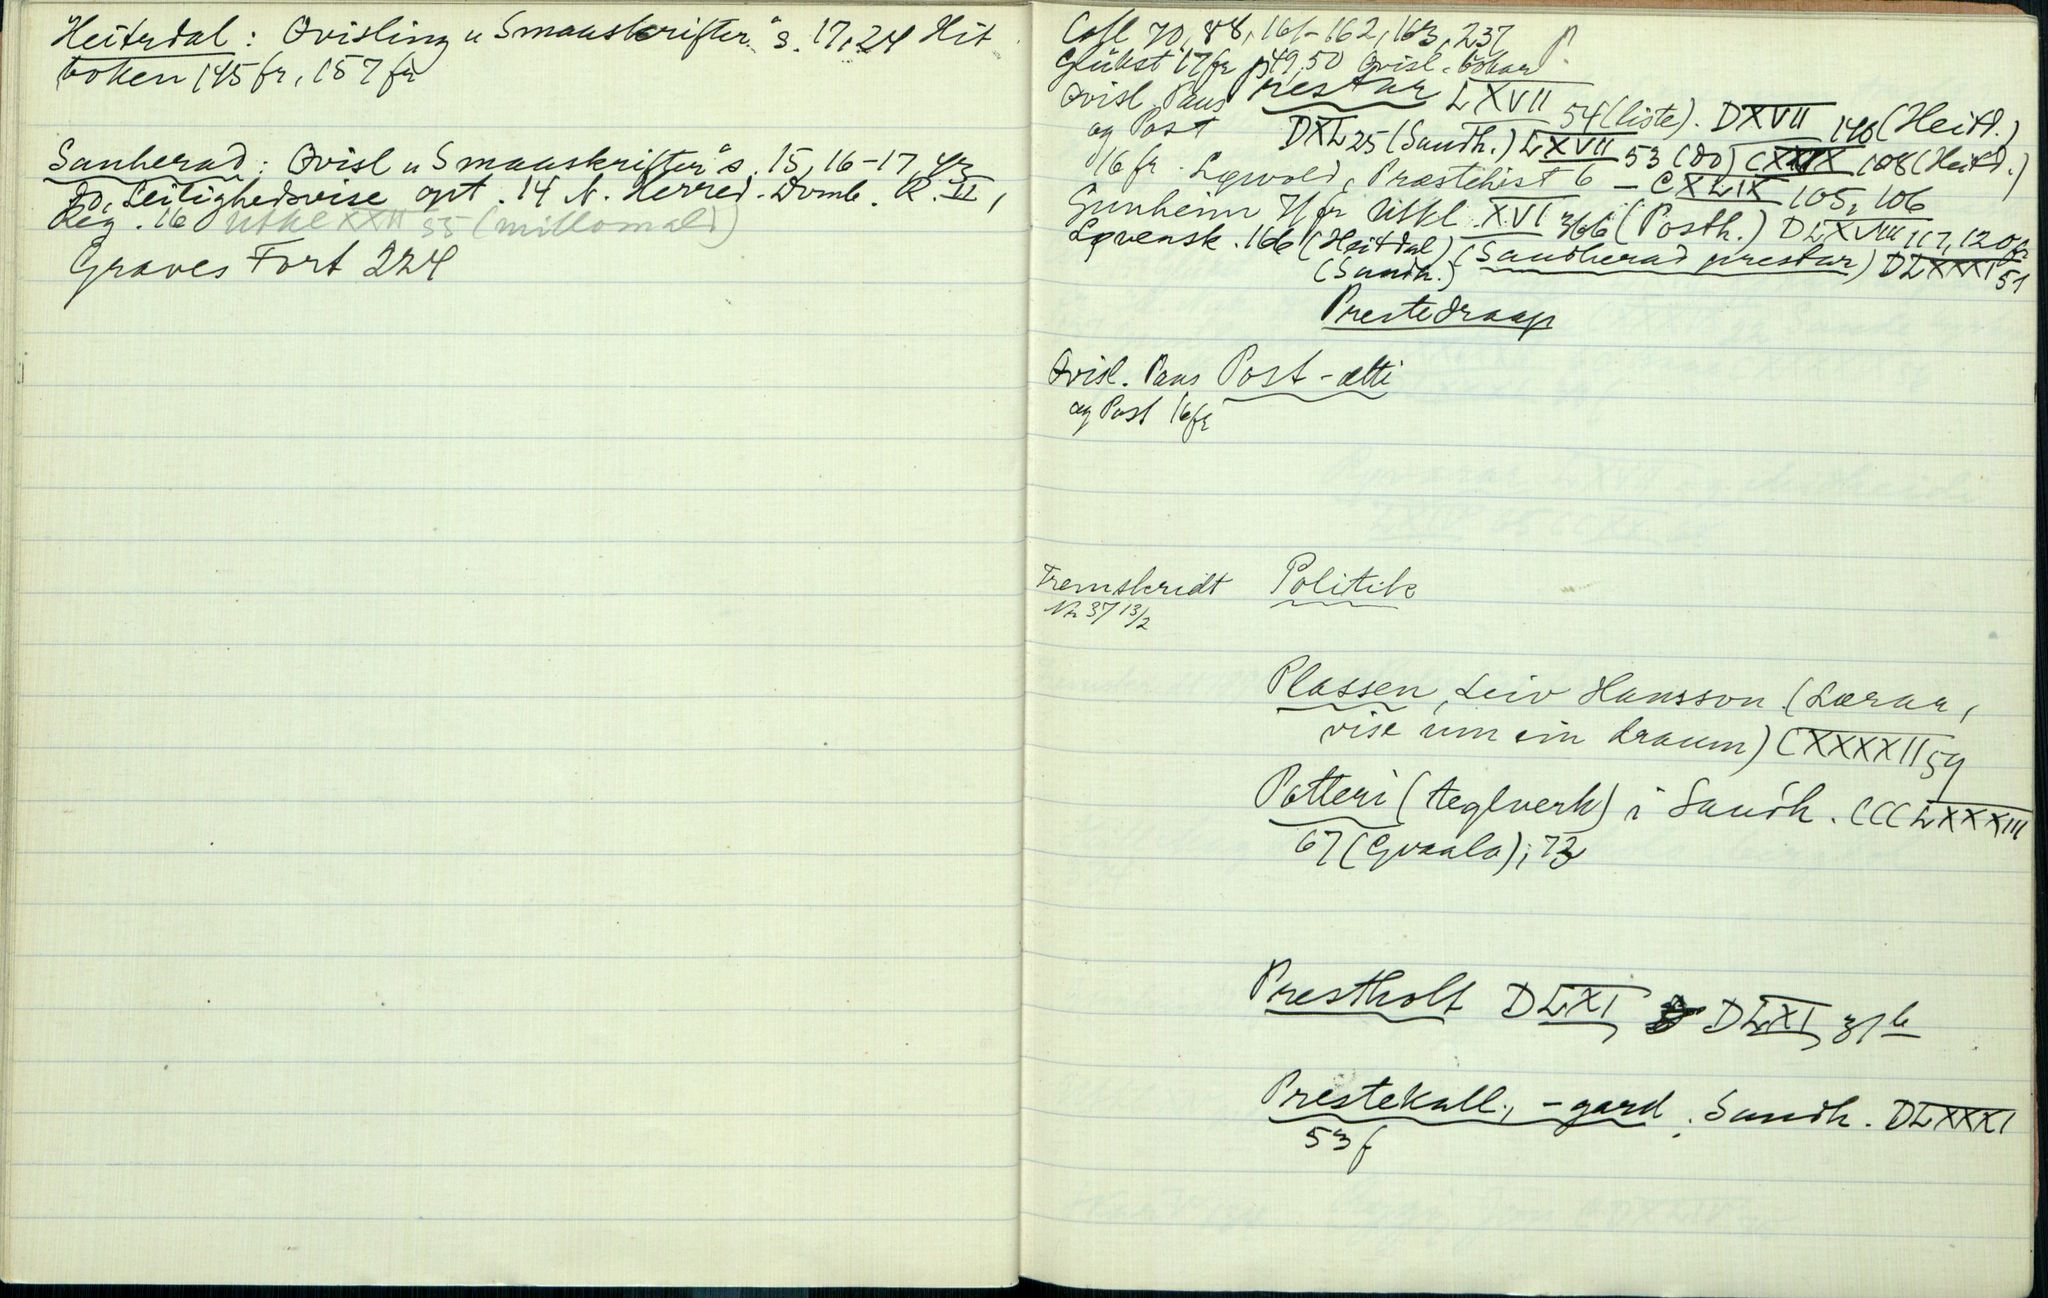 Heitrdal: Qvisling "Smaaskrifter" s. 17, 24 Hit
boken 145 fr, 157 fr
Sanherad: Qvisl "Smaaskrifter" s. 15, 16-17, 43
Jo, Leilighedsvise opt. 14 N. Herred. Domb. R. II,
Reg. 16 Utkl XXII 55 (millomald)
Graves Fort 224
P.
Coll 70, 88, 161-162, 163, 237
Glükst 17 fr p 49, 50 Qvisl. bokar
Qvisl. Paus Prestar LXVII 54 (liste). DXVII 140 (Heitd.)
og Post DXL 25 (Sandh.) LXVII 53 (do) CXXIX 108 (Heitd.)
16 fr. Løvold, Præstehist 6 - CXLIX 105, 106
Gunheim 71 fr Utkl XVI 366 (Posth.) DLXVIII 117, 120 fr
Løvensk. 166 (Heitdal) (Sandherad prestar) DLXXXI 51
(Sandh.)
Prestedraap
Qvisl. Paus Post-ætti
og Post 16 fr
Fremskridt Politik
Nr 37 13/2
Plassen, Leiv Hansson (Lærar,
vise um ein draum) CXXXXII 59
Potteri (teglverk) i Sandh. CCCLXXXIII
67 (Gvaala), 73
Prestholt DLXI DLXI 31 b
Prestekall, -gard. Sandh. DLXXXI
53 f